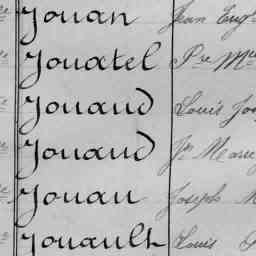 Jouan Jean Eug
Jouatel Pre Me
Jouaud Louis Jos
Jouaud Jn Marie
Jouau Joseph M
Jouault Louis